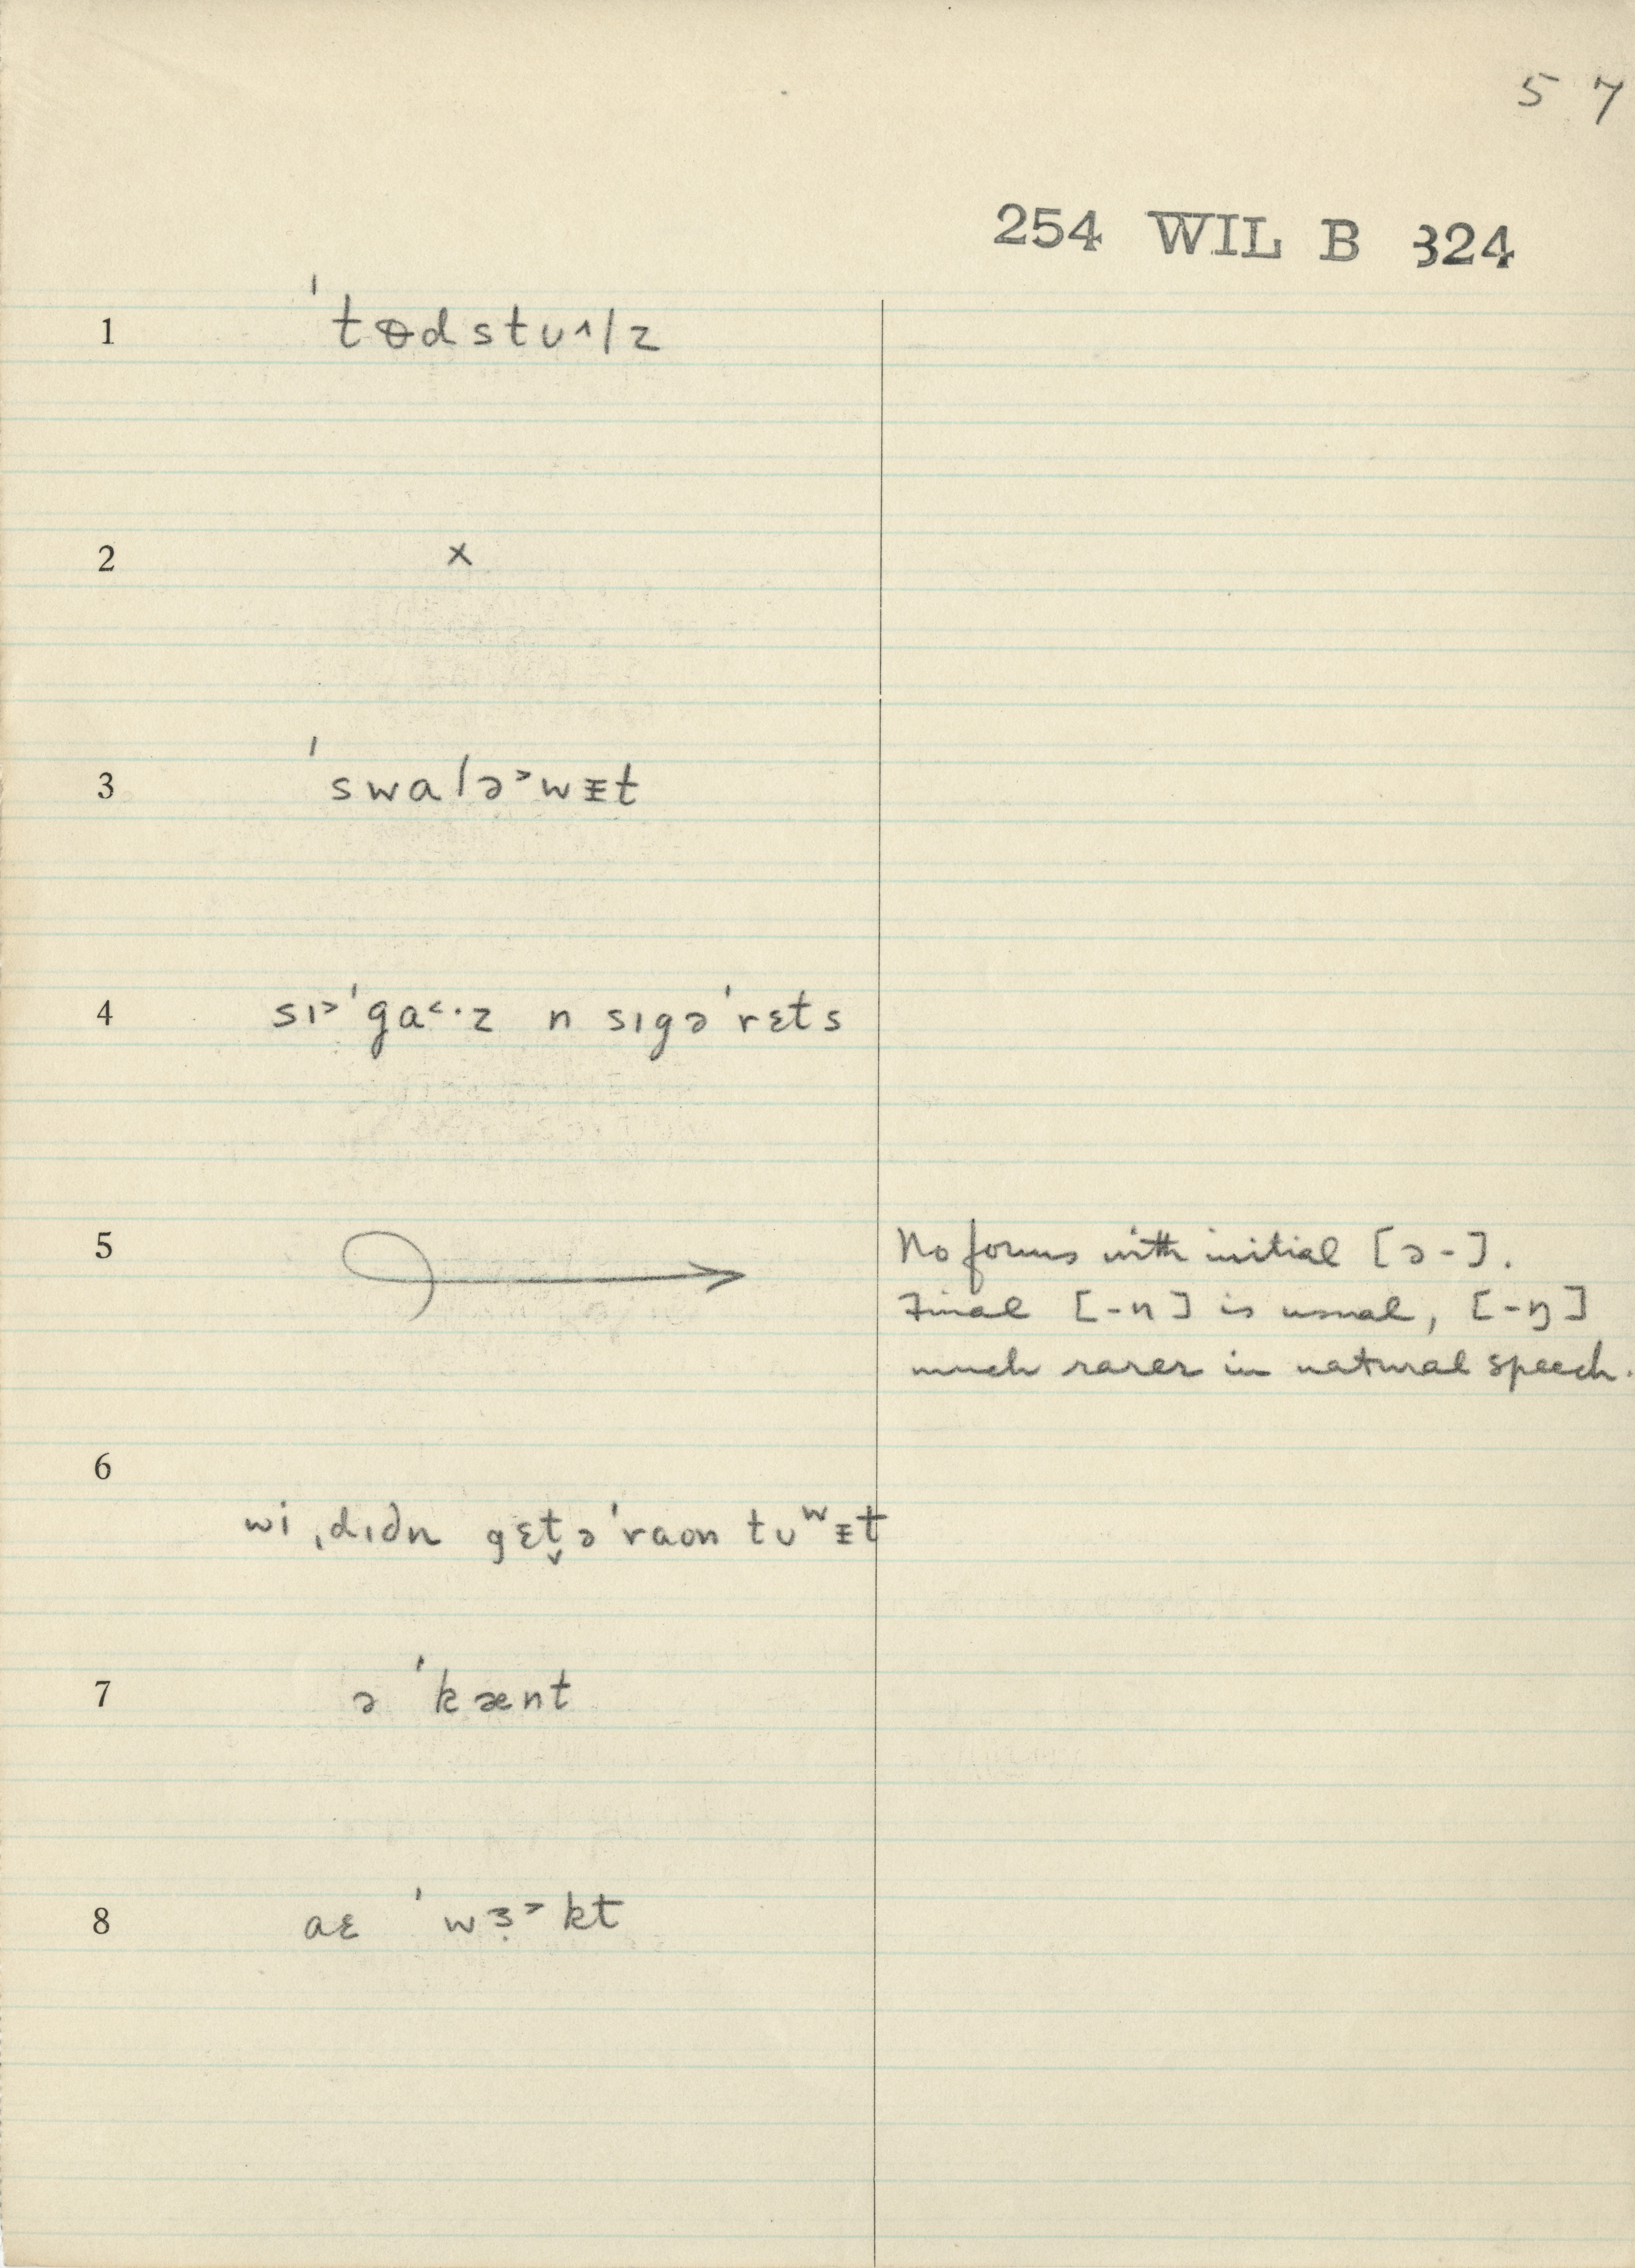 57
254 WIL B 324
1 ˈtɵdstu^lz
2 x
3 ˈswalə˃wᵻt
4 sɪ˃ˈga˂·z n sɪgəˈrɛts
5 No forms with initial [ə-].
Final [-n] is usual, [-ŋ]
much rarer in natural speech.
6
wi ˌdɪdn gɛt̬əˈraon tuʷᵻt
7 əˈkænt
8 aɛ ˈwɜ̣˃kt